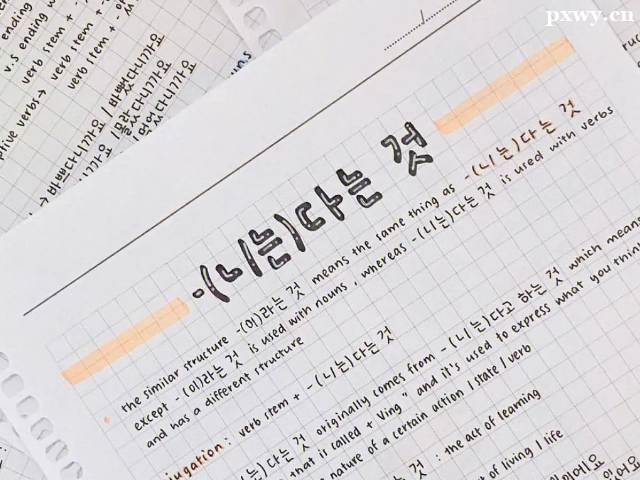 pxwy.cn
v.s ending
verb stem +
verb stem + -
verb stem + -
ptive verbs→
→ 바빴다니가요 / 바빴다니가요
가요 / 몰랐다니가요
/ 먹었다니가요
-(ㄴ/는)다는 것
the similar structure -(이)라는 것 means the same thing as -(ㄴ/는)다는 것
except -(이)라는 것 is used with nouns, whereas -(ㄴ/는)다는 것 is used with verbs
and has a different structure
jugation: verb stem + -(ㄴ/는)다는 것
/는)다는 것 originally comes from -(ㄴ/는)다고 하는 것 which means
that is called + Ving" and it's used to express what you thin
nature of a certain action / state / verb
것 : the act of learning
ct of living / life